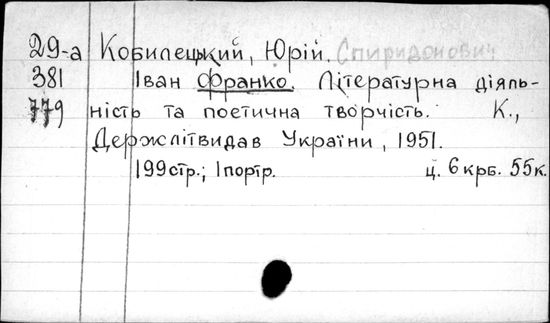 29-а Кобилецький, Юрій. Спиридонович
381 Іван Франко. Літературна діяль-
779 ність та поетична творчість. К.,
Держлітвидав України, 1951.
199стр.; 1портр. ц. 6 крб. 55к.